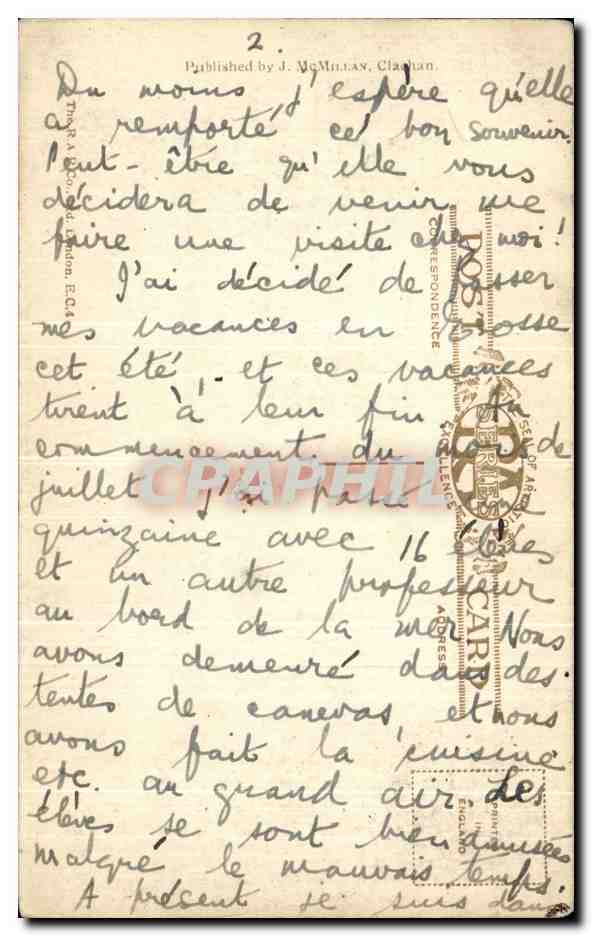 2.
Published by J. McMillan, Clachan.
Du moins j'espère qu'elle
a remporté ce bon souvenir.
Peut-être qu'elle vous
décidera de venir me
faire une visite chez moi!
J'ai décidé de passer
mes vacances en Ecosse
cet été, et ces vacances
tirent à leur fin. Au
commencement du mois de
juillet j'ai passé une
quinzaine avec 16 élèves
et un autre professeur
au bord de la mer. Nous
avons demeuré dans des
tentes de canevas, et nous
avons fait la cuisine
etc. au grand air. Les
élèves se sont bien amusées
malgré le mauvais temps.
A présent je suis dans
The R.A.P. Co. Ltd., London, E.C.4
POST CARD
CORRESPONDENCE
ADDRESS
EXCELLENCE
RA
SERIES
PRINTED
IN
ENGLAND
CPAPHIL